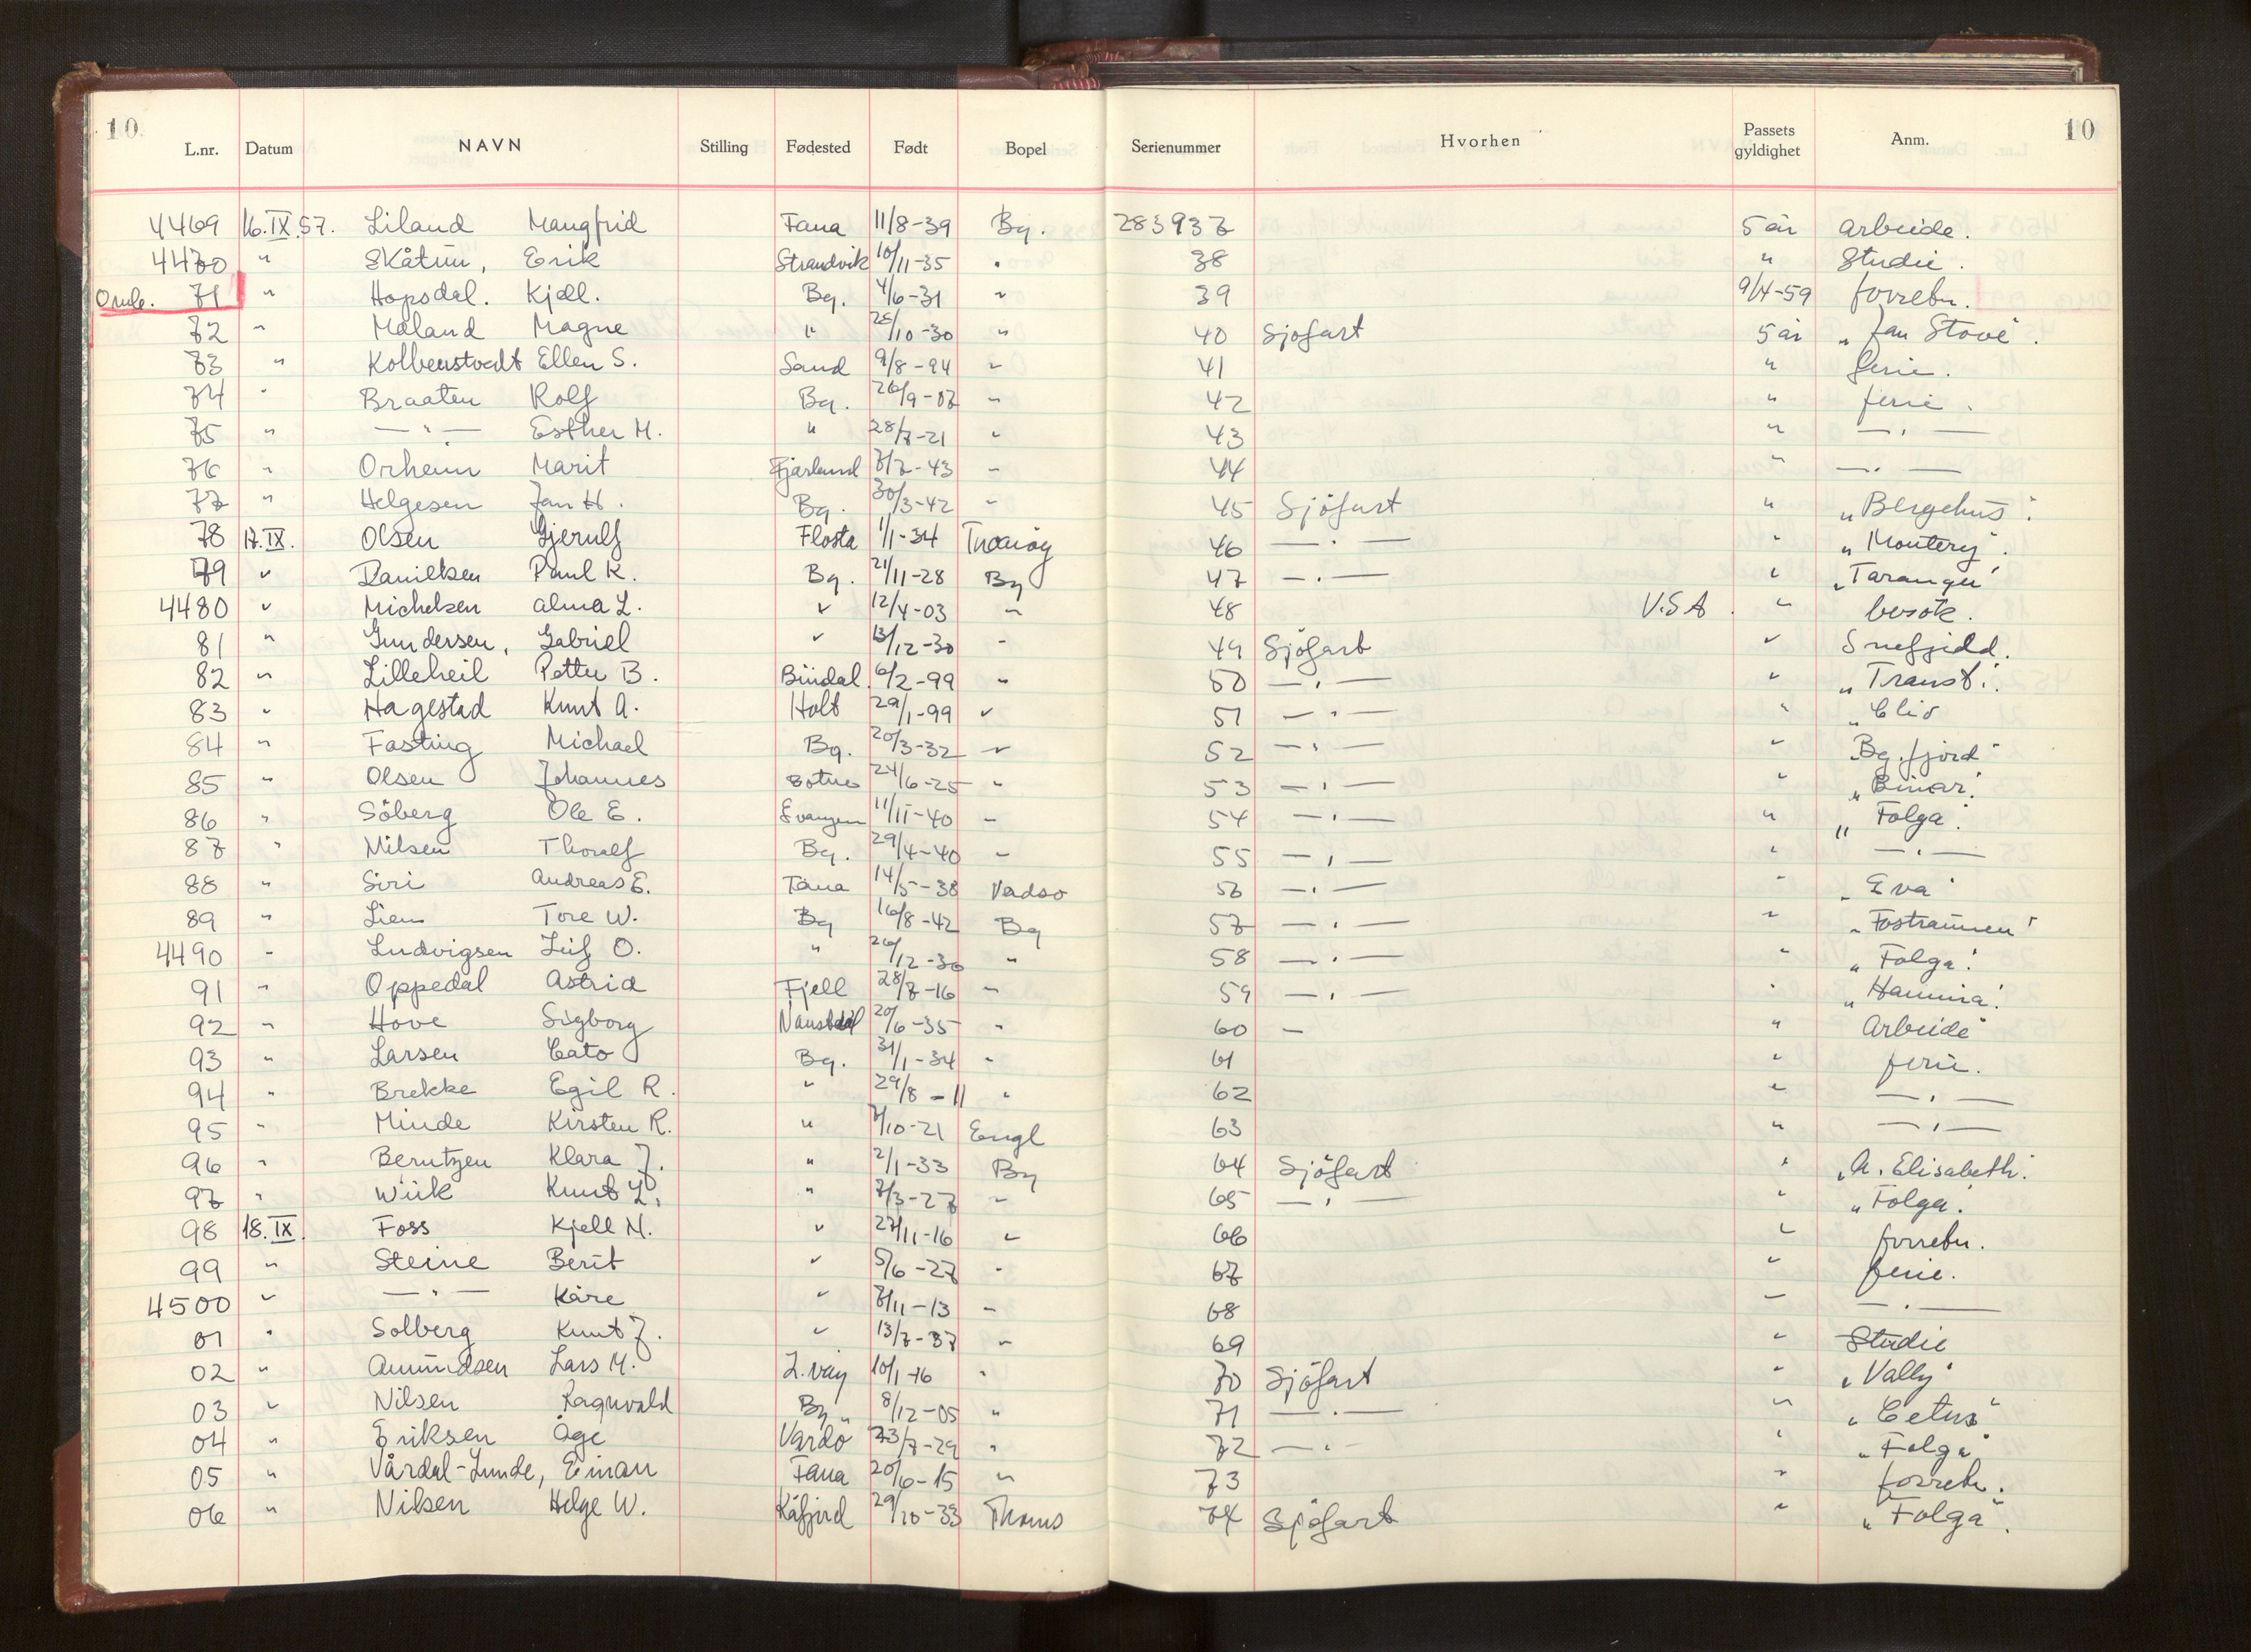 10. 10
L.nr. Datum NAVN Stilling Fødested Født Bopel Serienummer Hvorhen Passets gyldighet Anm.
4469 16.IX.57. Liland Mangfrid Fana 11/8-39 Bg. 283937 5 år Arbeide.
4470 " Skåtun, Erik Strandvik 10/11-35 " 38 " Studie.
71 " Hopsdal. Kjell. Bg. 4/6-31 " 39 9/4-59 forretn.
72 " Måland Magne " 28/10-30 " 40 Sjøfart 5 år "Jan Stove".
73 " Kolbenstvedt Ellen S. Sand 9/8-94 " 41 " ferie.
74 " Braaten Rolf Bg. 26/9-07 " 42 " ferie.
75 " — " — Esther M. " 28/7-21 " 43 " — " —
76 " Orheim Marit Fjærland 7/7-43 " 44 " — " —
77 " Helgesen Jan H. Bg. 30/3-42 " 45 Sjøfart " "Bergehus".
78 17.IX. Olsen Gjerulf Flosta 1/1-34 Tromøy 46 — " — " "Montery".
79 " Danielsen Paul K. Bg. 21/11-28 Bg 47 — " — " "Taranger"
4480 " Michelsen Alma L. " 12/4-03 " 48 U.S.A. " besøk.
81 " Gundersen, Gabriel " 13/12-30 " 49 Sjøfart " Snefjeld.
82 " Lilleheil Petter B. Bindal 6/2-99 " 50 — " — "
83 " Hagestad Knut A. Holt 29/1-99 " 51 — " — " "Clio
84 " Fasting Michael Bg. 20/3-32 " 52 — " — " Bg.fjord"
85 " Olsen Johannes Botne 24/6-25 " 53 — " — " "Binar".
86 " Söberg Ole E. Evangen 11/11-40 " 54 — " — " "Folga".
87 " Nilsen Thoralf Bg. 29/4-40 " 55 — " — " — " —
88 " Siri Andreas E. Tana 14/5-38 Vadsø 56 — " — " "Eva"
89 " Lien Tore W. Bg 16/8-42 Bg 57 — " — " "Fostraumen"
4490 " Ludvigsen Leif O. " 26/12-30 " 58 — " — " "Folga".
91 " Oppedal Astrid Fjell 28/7-16 " 59 — " — " "
92 " Hove Sigborg Naustdal 20/6-35 " 60 — " Arbeide
93 " Larsen Cato Bg. 31/1-34 " 61 " ferie.
94 " Brekke Egil R. " 29/8-11 " 62 " — " —
95 " Minde Kirsten R. " 7/10-21 Engl 63 " — " —
96 " Berntzen Klara J. " 2/1-33 Bg 64 Sjøfart " "A. Elisabeth".
97 " Wiik Knut L. " 7/3-27 " 65 — " — " "Folga".
98 18.IX. Foss Kjell N. " 27/11-16 " 66 " forretn.
99 " Steine Berit " 5/6-27 " 67 " ferie.
4500 " — " — Kåre " 7/11-13 " 68 " — " —
01 " Solberg Knut J. " 13/7-37 " 69 " Studie
02 " Amundsen Lars M. L.våg 10/1-16 " 70 Sjøfart " "Vally"
03 " Nilsen Ragnvald Bg " 8/12-05 " 71 — " — " "Cetus"
04 " Eriksen Åge Vardø 23/7-29 " 72 — " — " "Folga"
05 " Vårdal-Lunde, Einar Fana 20/6-15 " 73 " forretn.
06 " Nilsen Helge W. Kåfjord 29/10-33 74 Sjøfart " "Folga".